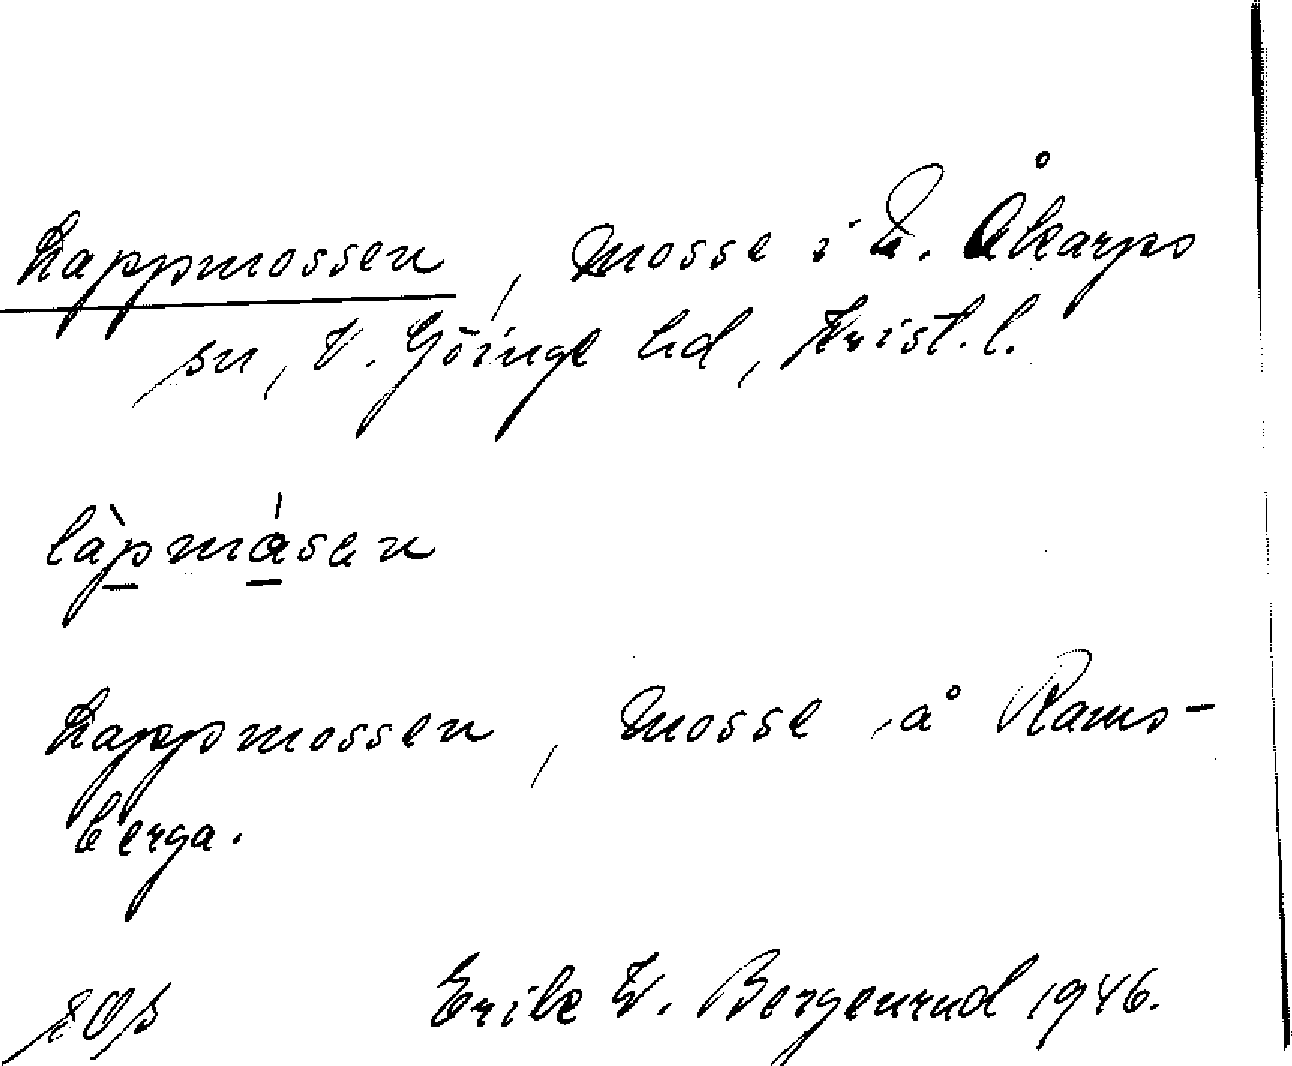 Lappmossen, Mosse i N. Åkarps
sn, V. Göinge hd, Krist. l.
làpmåsen
Lappmossen, Mosse å Rams-
berga.
Erik W. Bergenrud 1946.